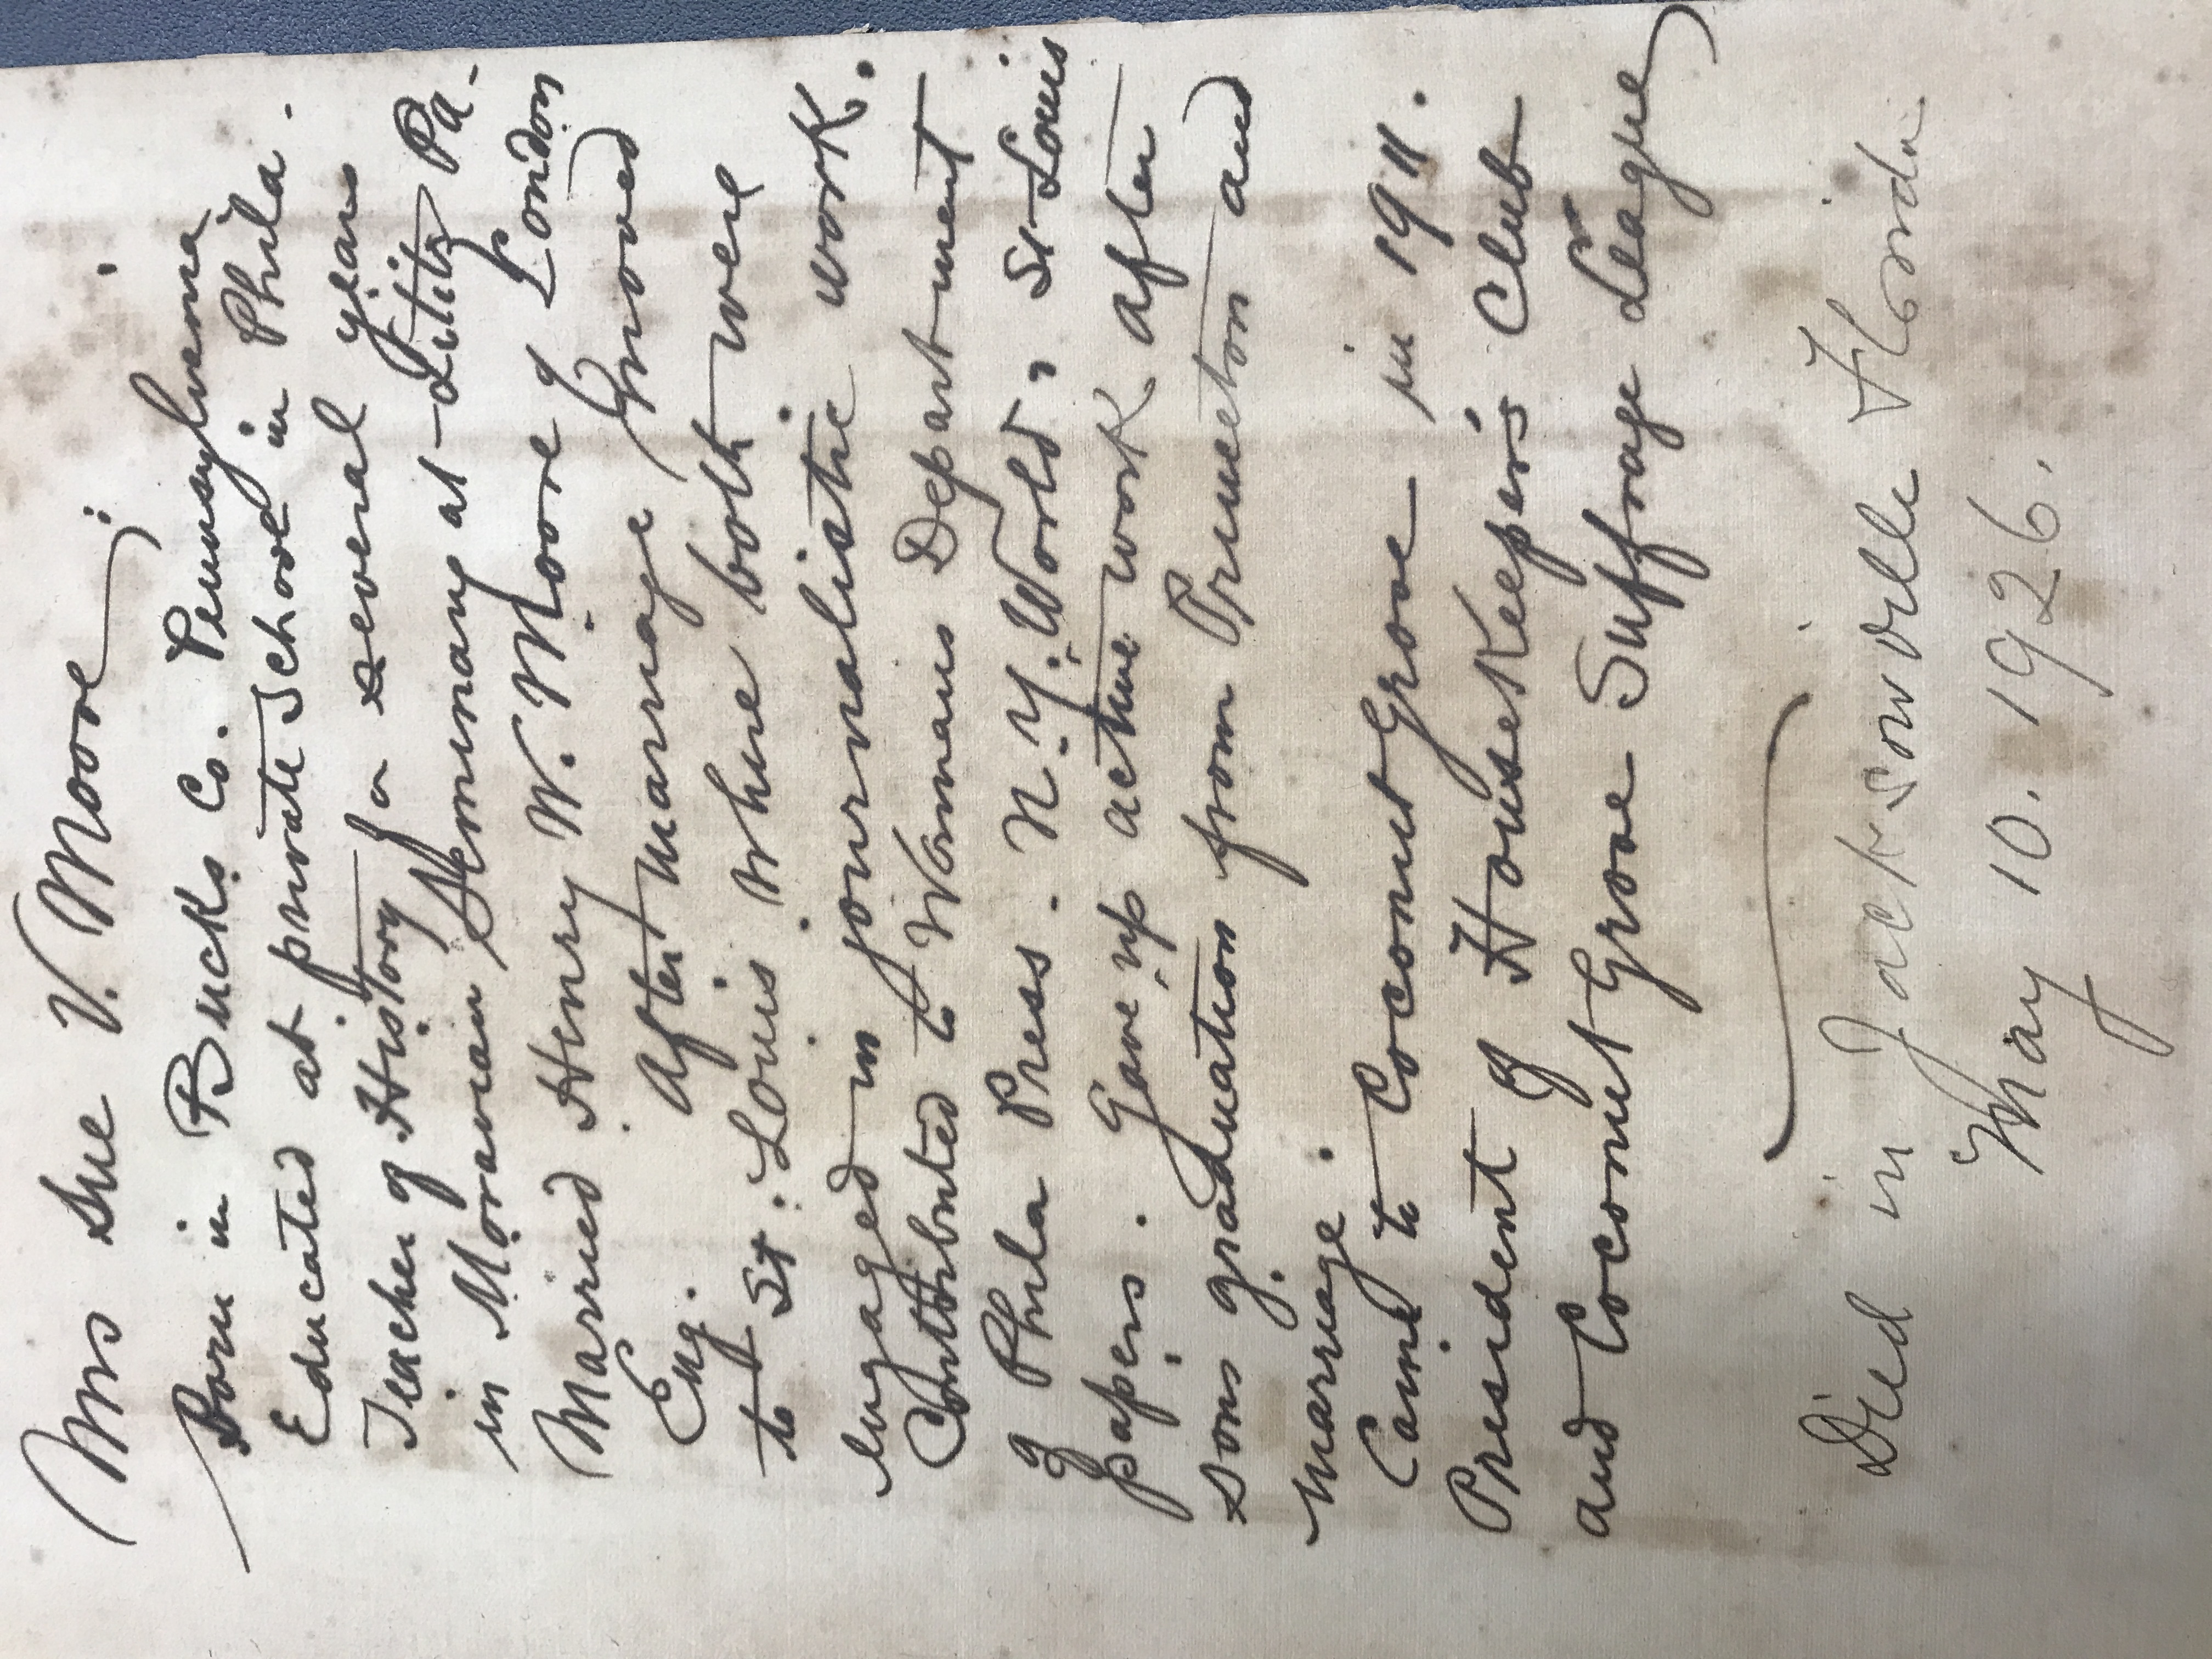 Mrs Sue V. Moore;
Born in Bucks Co. Pennsylvania
Educated at private School in Phila.
Teacher of History for several years
in Moravian Seminary at Lititz Pa.
Married Henry W. Moore of London
Eng. After marriage moved
to St. Louis where both were
engaged in journalistic work.
Contributed to Womans Department
of Phila Press. N.Y. World & St Louis
papers. Gave up active work after
sons graduation from Princeton and
marriage.
Came to Coconut Grove in 1911.
President of HouseKeeper's Club
and Coconut Grove Suffrage League
Died in Jacksonville Florida
May 10. 1926.